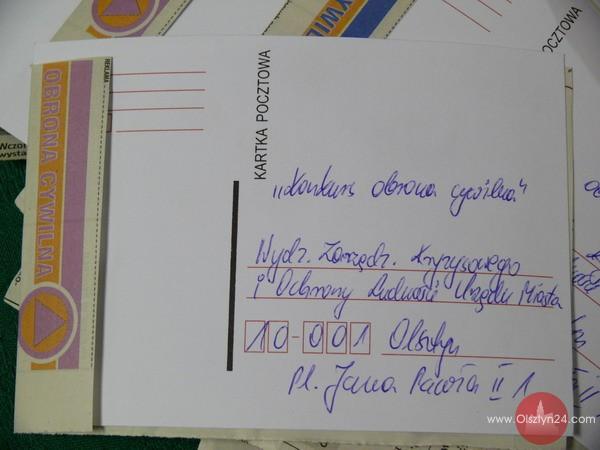 CYWIL
POCZTOWA
REKLAMA
OBRONA CYWILNA
Wczor
wysta
KARTKA POCZTOWA
„Konkurs obrona cywilna"
Wydz. Zarządz. Kryzysowego
i Ochrony Ludności Urzędu Miasta
10-001 Olsztyn
Pl. Jana Pawła II 1
www.Olsztyn24.com